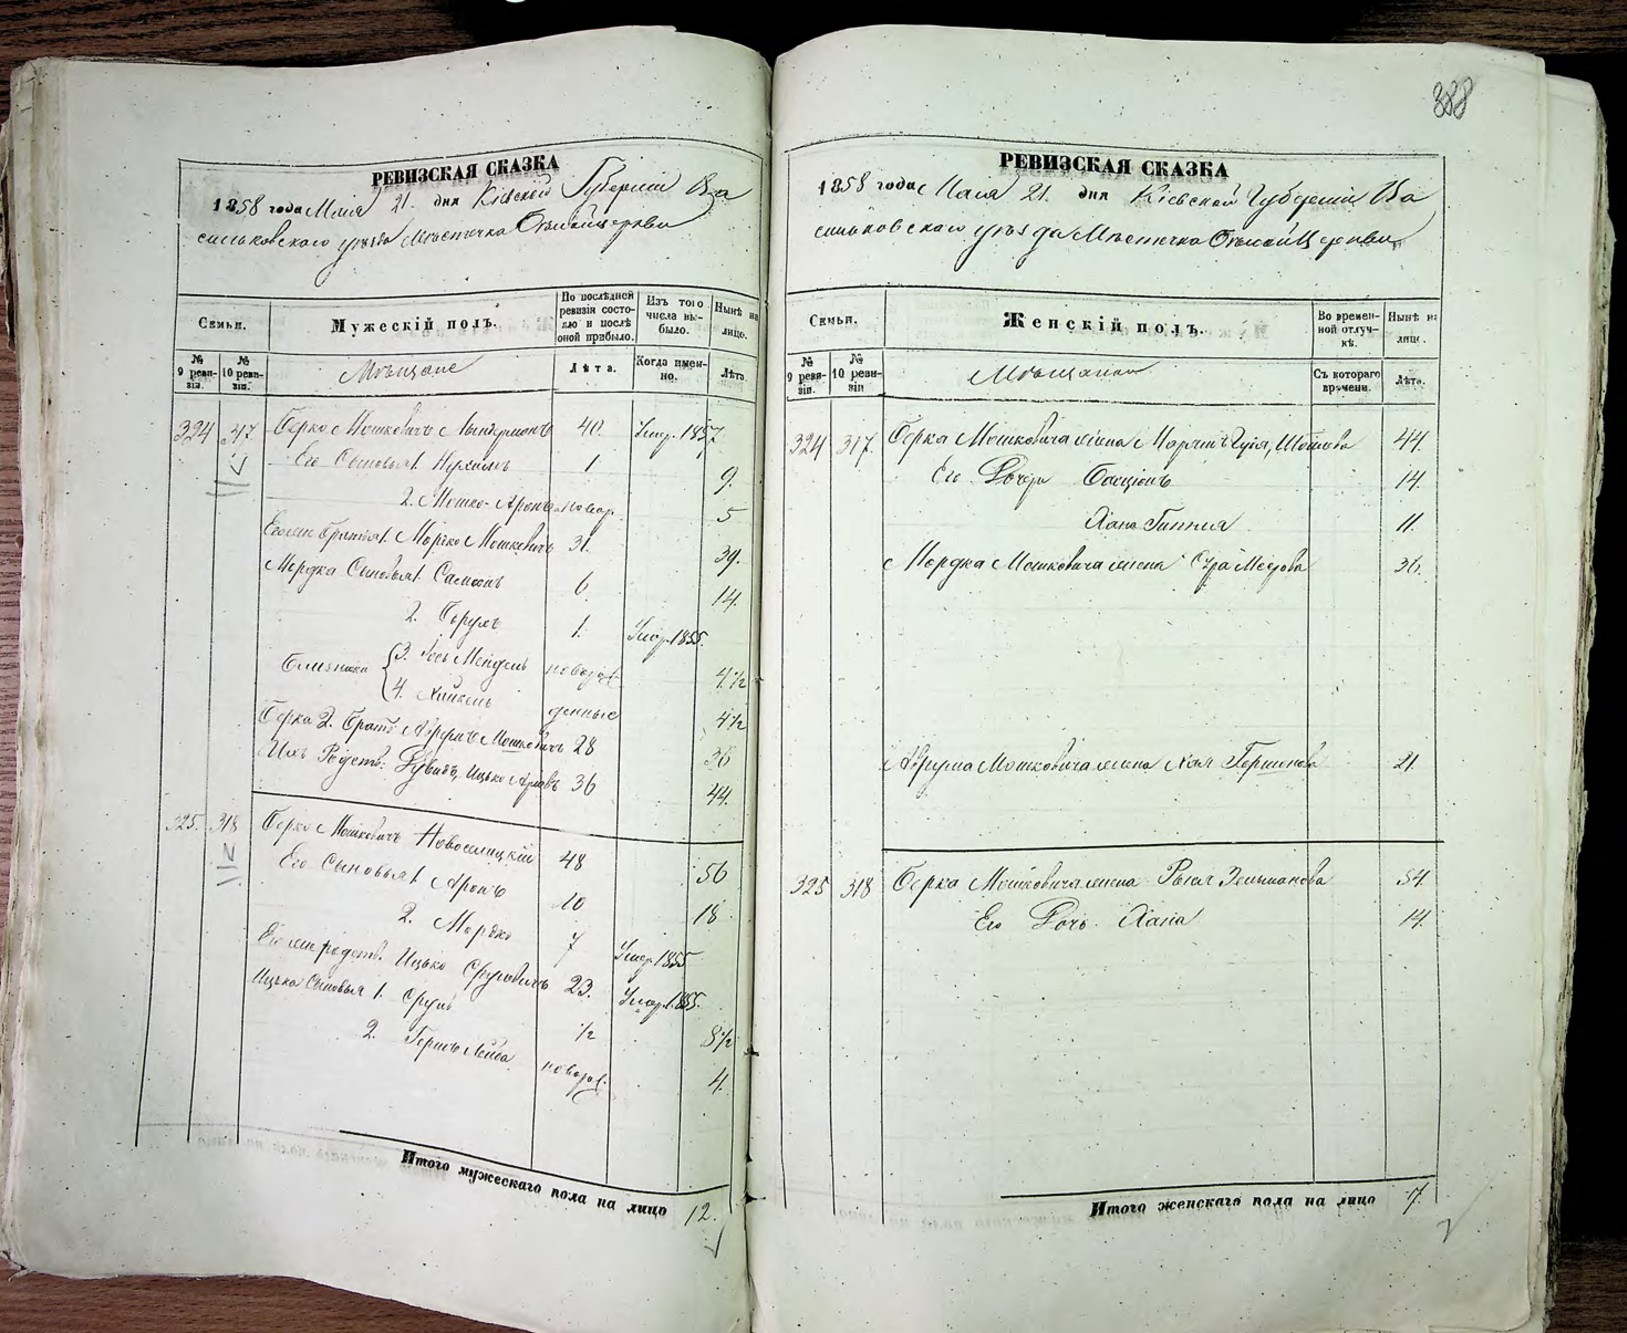 388
РЕВИЗСКАЯ СКАЗКА
1858 года Маія 21. дня Кіевской Губерніи Ва
сильковскаго уѣзда Мѣстечка Бѣлойцеркви
Семьи.
Мужескій полъ.
По послѣдней ревизіи состояло и послѣ оной прибыло.
Изъ того числа выбыло.
Нынѣ на лицо.
№ 9 ревизіи.
№ 10 ревизіи.
Мѣщане
Лѣта.
Когда именно.
Лѣта
324 317 Берко Мошковичъ 40. Умер. 1857
Его Сыновья 1. 1 9.
2. Мошко-Аронъ новор. 5
Его же Братья 1. Мордко Мошковичъ 31. 39.
Мордка Сыновья 1. 6. 14.
2. Сруль 1. Умер. 1855.
Близнята 3. Іось Мендель новорож 4 1/2
4. Хаикель денные 4 1/2
Берка 2. Братъ Аврумъ Мошковичъ 28 36
Ихъ Родств: Ицько 36 44.
325. 318 Берко Мошковичъ Новоселицкій 48 56
Его Сыновья 1. Аронъ 10 18.
2. Мордко 7 Умер. 1855
Его же родств. Ицько Сруловичъ 23. Умер. 1855.
Ицька Сыновья 1. Сруль 1/2 8 1/2
2. Гершъ Лейба новорож. 4.
Итого мужескаго пола на лицо 12.
РЕВИЗСКАЯ СКАЗКА
1858 года Маія 21. дня Кіевской Губерніи Ва
сильковскаго уѣзда Мѣстечка Бѣлой Церкви
Семьи.
Женскій полъ.
Во временной отлучкѣ.
Нынѣ на лицо.
№ 9 ревизіи.
№ 10 ревизіи
Мѣщанки
Съ котораго времени.
Лѣта.
324 317. Берка Мошковича жена 44.
Его Дочери Басціонъ 14.
Хана 11.
Мордка Мошковича жена Сура Меерова 36.
Аврума Мошковича жена Хая Гершкова 21.
325 318 Берка Мошковича жена Рыся Зельманова 54.
Его Дочь Хана 14.
Итого женскаго пола на лицо 7.